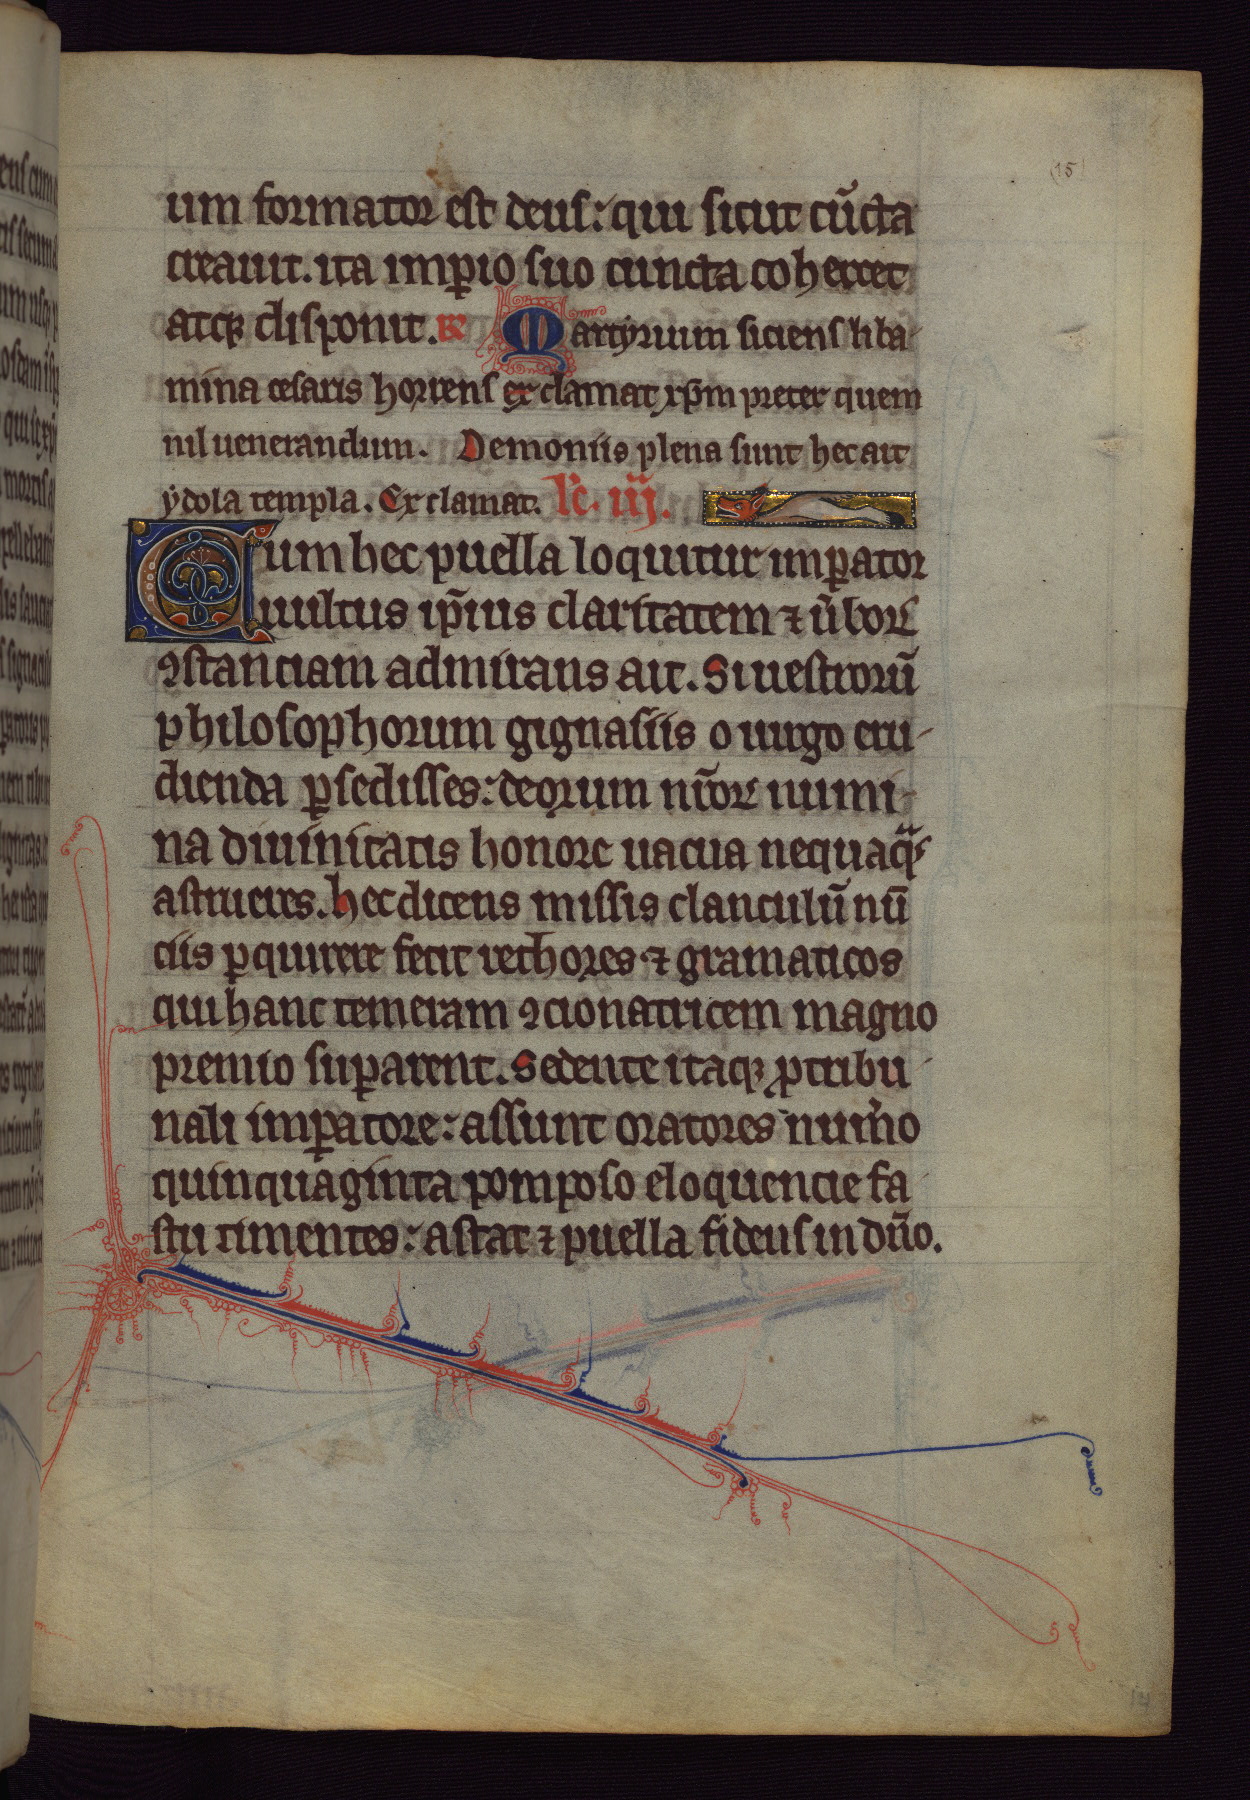 (15)
um formator est deus: qui sicut cūcta
creauit. ita imꝑio suo cuncta cohercet
atqꝫ disponit. R̷ Martyrium siciens liba-
mina cesaris horrens exclamat xp̄m preter quem
nil uenerandum. Demoniis plena sunt hec ait
ydola templa. Exclamat. lc̄. iij.
Cum hec puella loquitur imꝑator
uultus ip̄ius claritatem ⁊ ūboꝝ
ꝯstanciam admirans ait. Si uestrorū
philosophorum gignasiis o uirgo eru-
dienda ꝑsedisses: deorum nr̄oꝝ numi-
na diuinitatis honore uacua nequaq̄
astrueres. hec dicens missis clanculū nū
ciis ꝑquirere fecit rethores ⁊ gramaticos
qui hanc temeram ꝯcionatricem magno
premio suꝑarent. Sedente itaqꝫ ꝓ tribu-
nali imꝑatore: assunt oratores num̄o
quinquaginta pomposo eloquencie fa
stu timentes: astat ⁊ puella fidens in dn̄o.